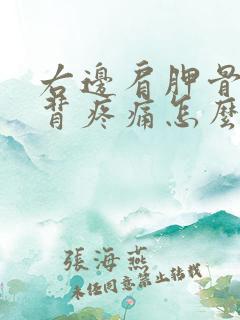 右邊肩胛骨
背疼痛怎麼
張海燕
未經同意禁止轉載